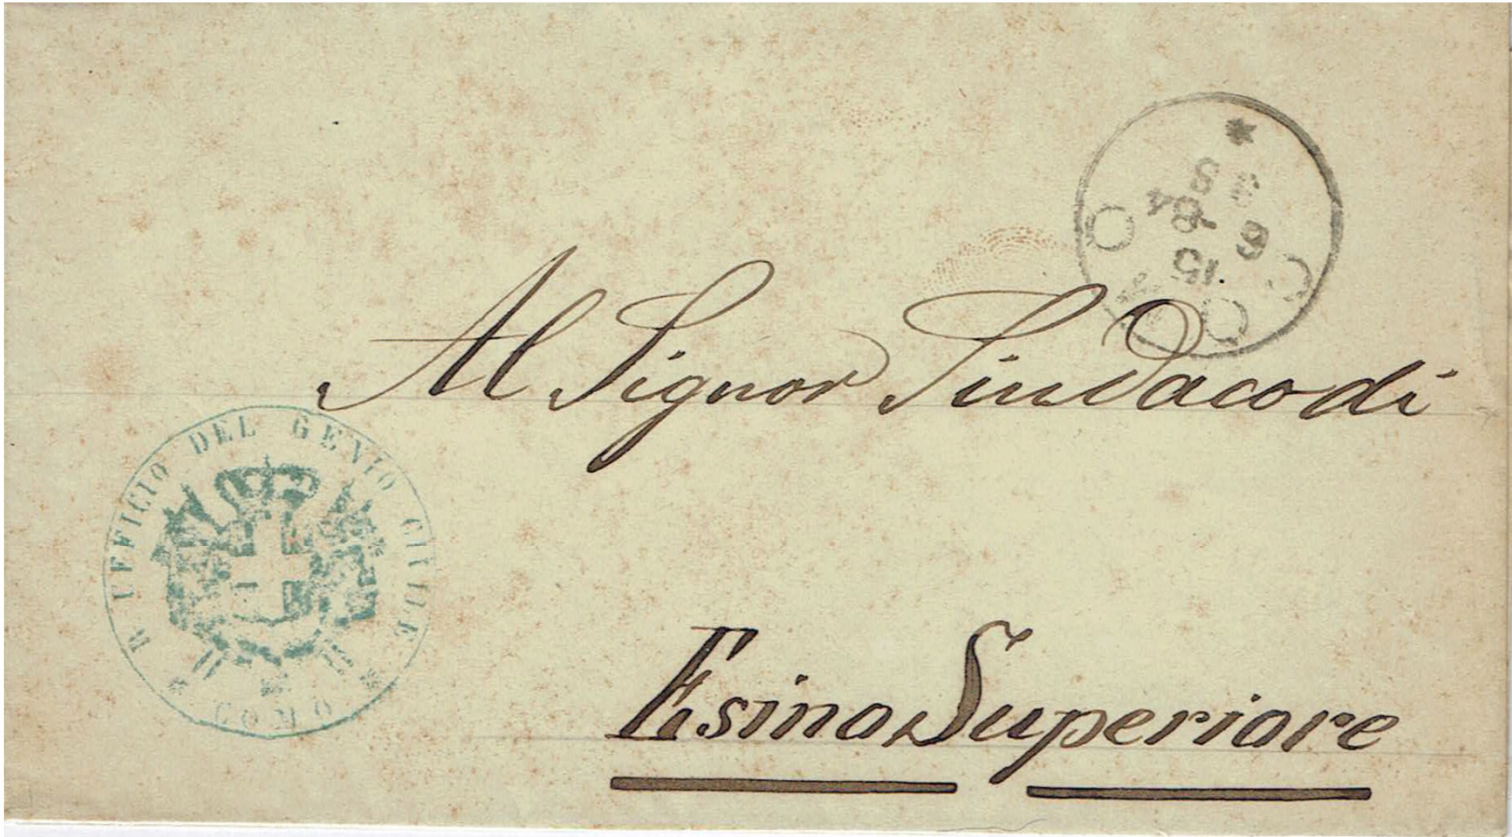 COMO
Al Signor Sindaco di
R UFFICIO DEL GENIO CIVILE
* COMO *
Esino Superiore